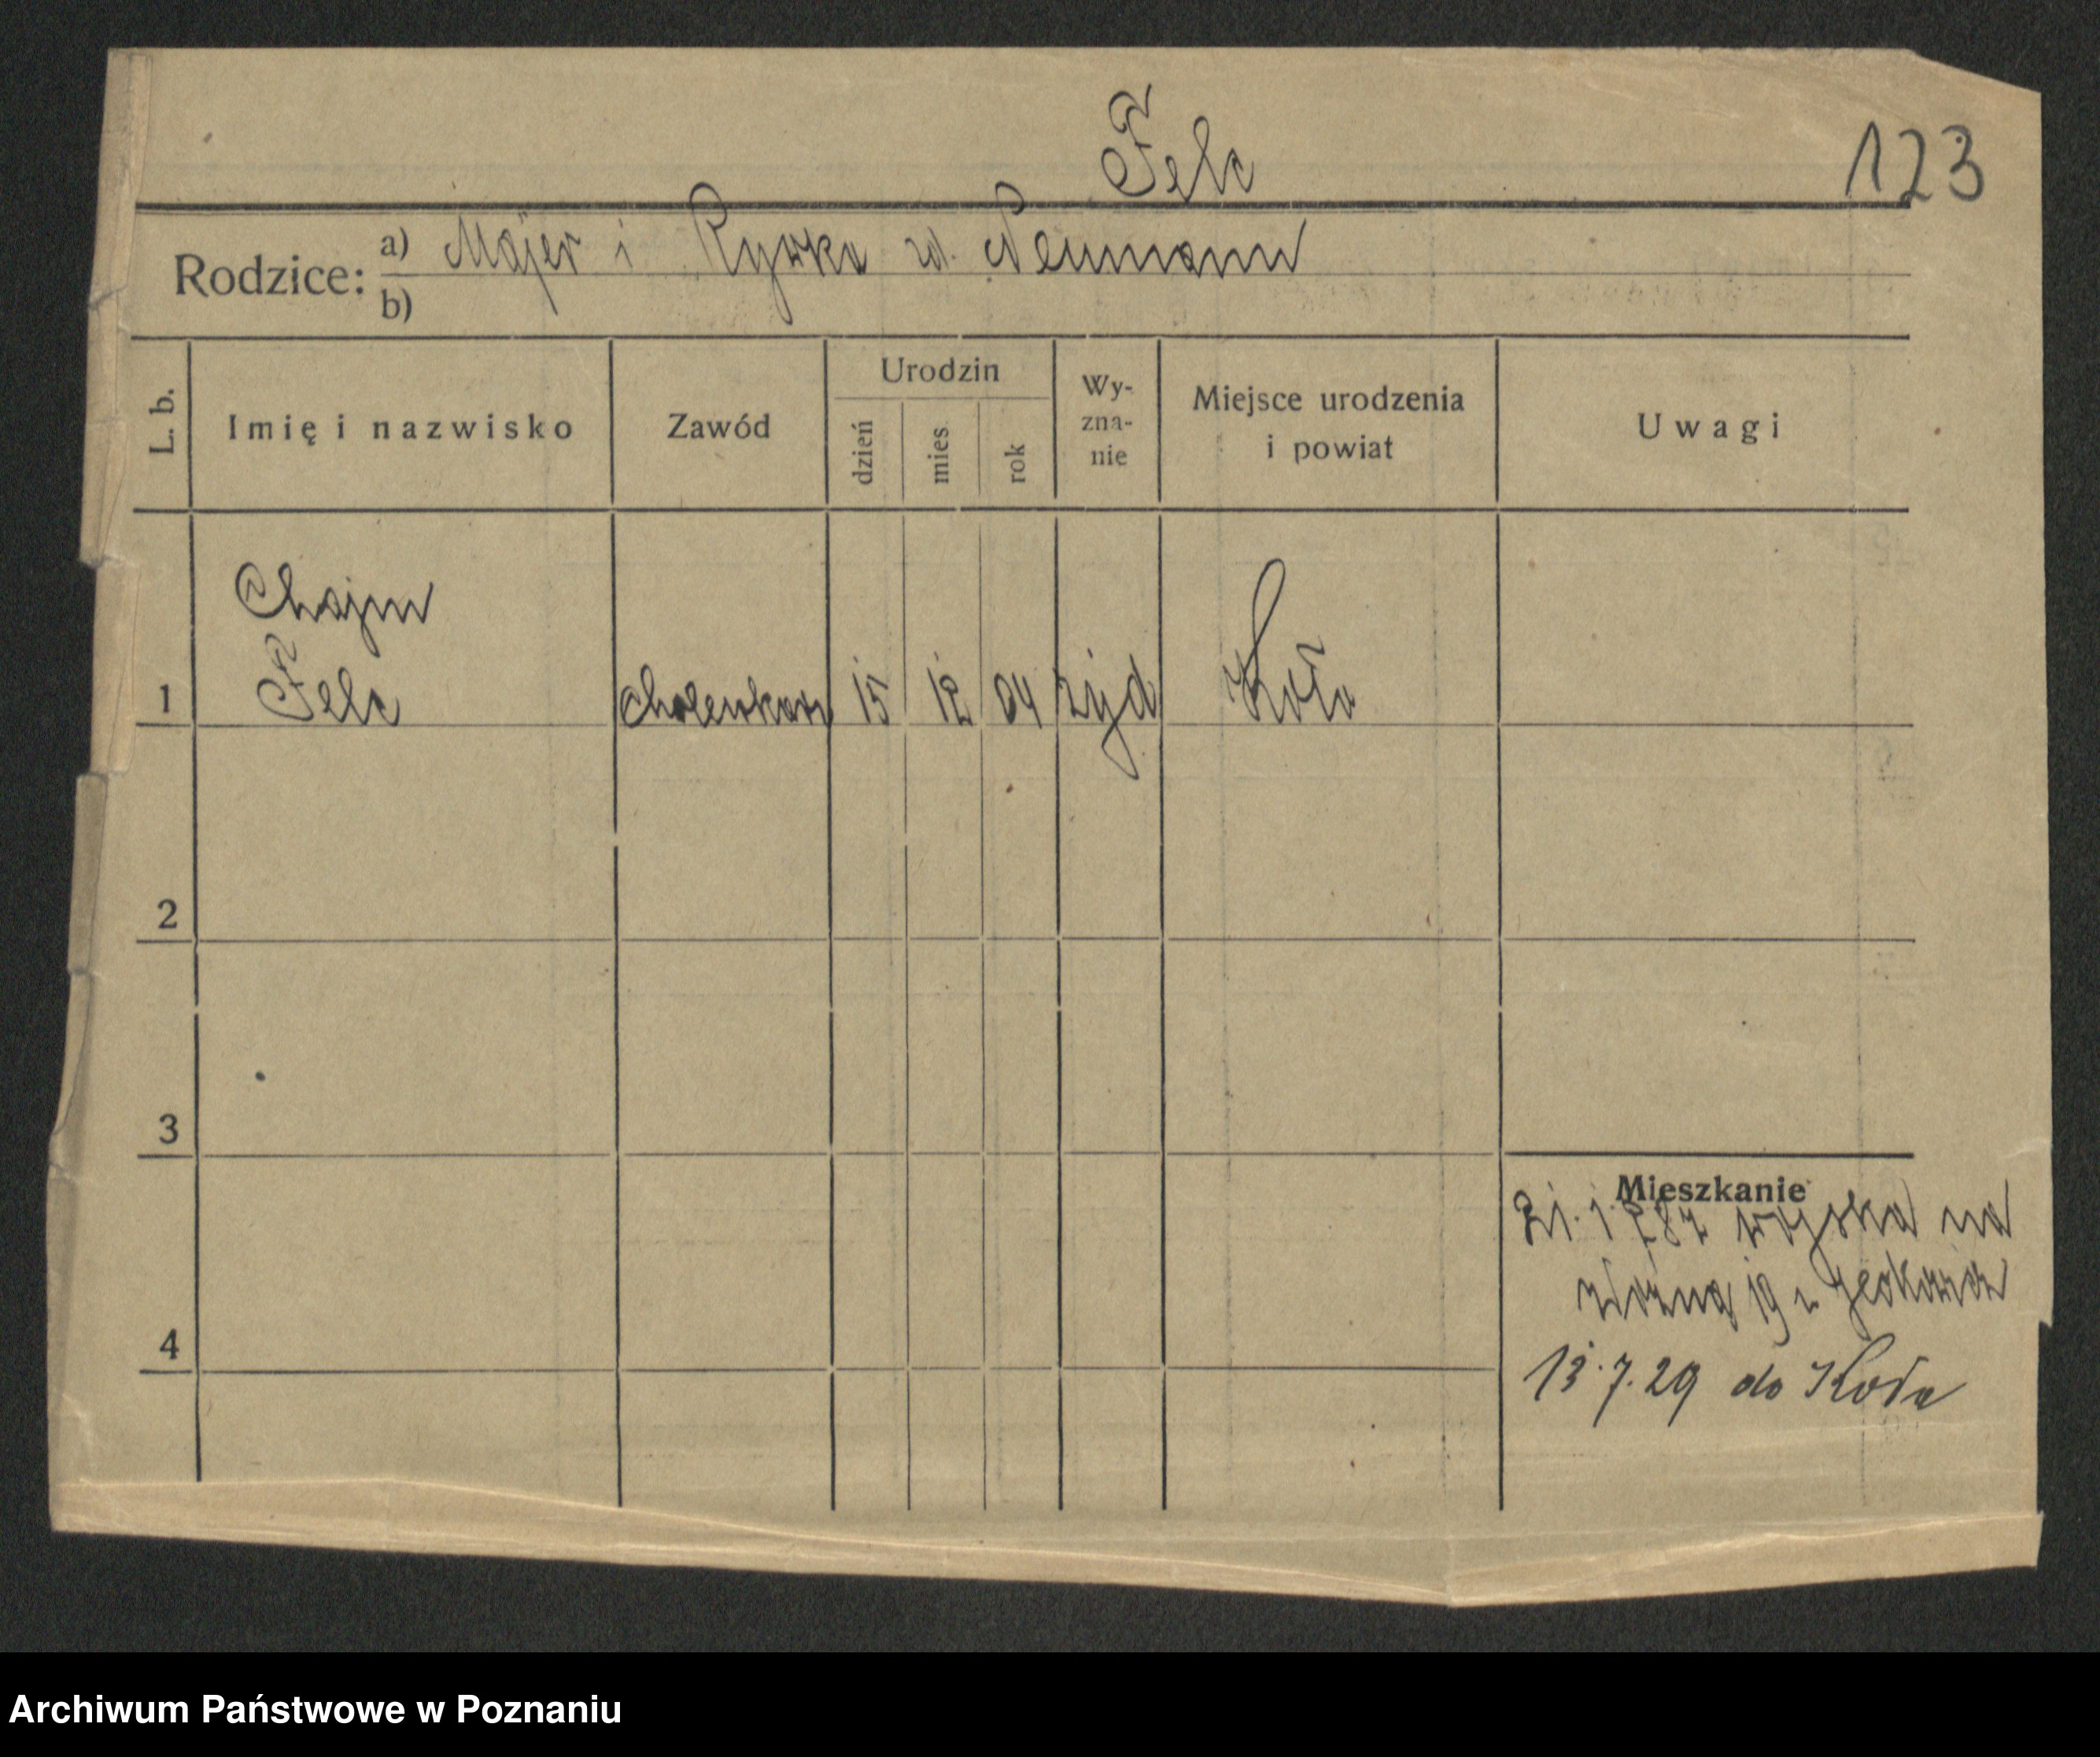 Felc
123
Rodzice: a) Majer i Rywka zd. Neumann
b)
L. b. Imię i nazwisko Zawód Urodzin dzień mies rok Wy-zna-nie Miejsce urodzenia i powiat Uwagi
Chajm
1 Felc cholewkarz 15 12 04 żyd Koło
2
3
Mieszkanie
wojska na
19 u
4
13.7.29 do Koła
Archiwum Państwowe w Poznaniu